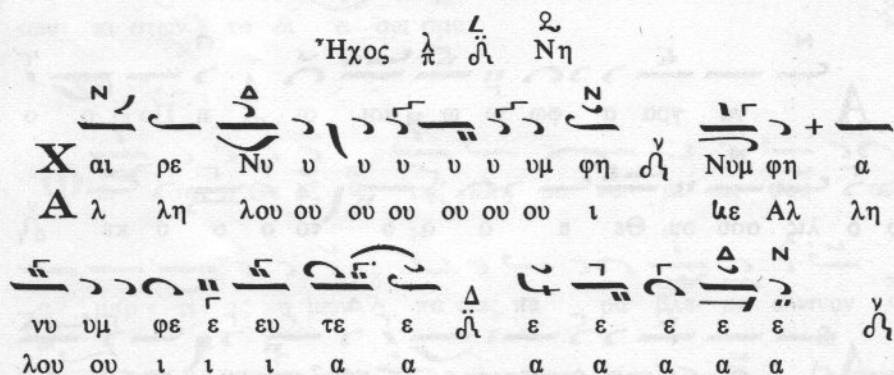 Ἦχος λ π Νη
Ν Δ Ν
Χ αι ρε Νυ υ υ υ υ υ υμ φη γ Νυμ φη + α
Α λ λη λου ου ου ου ου ου ου ι ιε Αλ λη
Δ Ν
νυ υμ φε ε ευ τε ε Δ ε ε ε ε ε γ
λου ου ι ι ι α α α α α α α